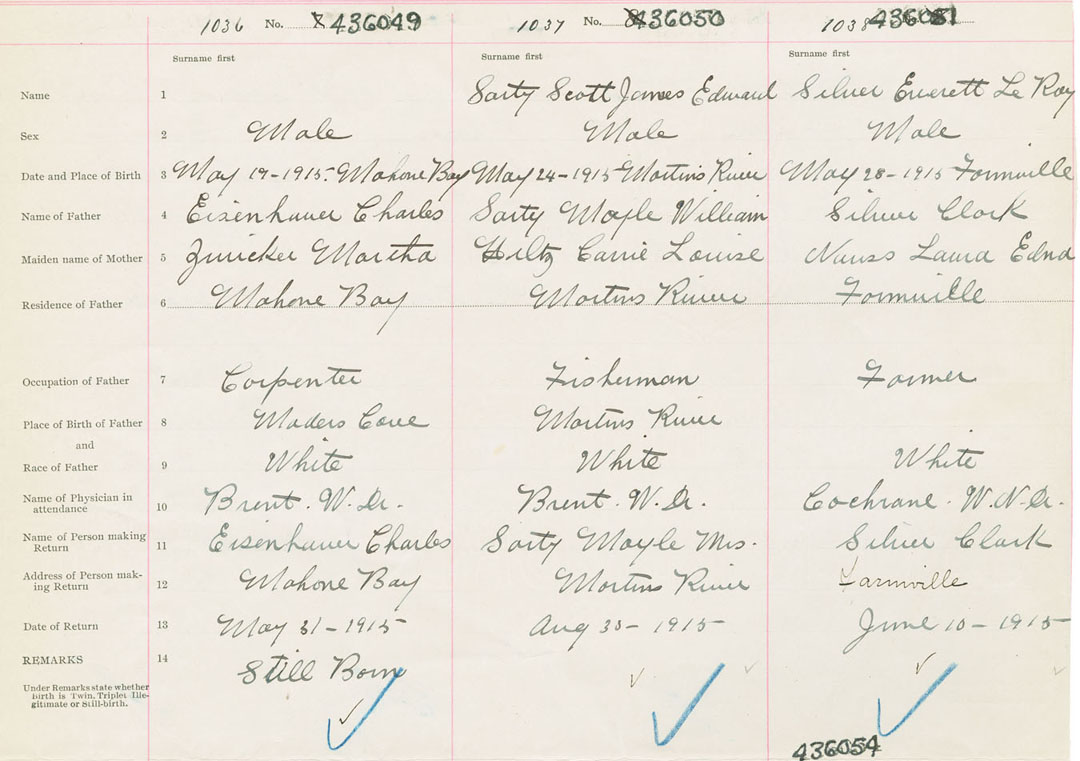 1036 No. 436049 1037 No. 436050 1038 436051
Surname first Surname first Surname first
Name 1 Sarty Scott James Edward Silver Everett Le Roy
Sex 2 Male Male Male
Date and Place of Birth 3 May 19-1915. Mahone Bay May 24-1915 Martins River May 28-1915 Farmville
Name of Father 4 Eisenhauer Charles Sarty Moyle William Silver Clark
Maiden name of Mother 5 Zwicker Martha Hiltz Carrie Louise Nauss Laura Edna
Residence of Father 6 Mahone Bay Martins River Farmville
Occupation of Father 7 Carpenter Fisherman Farmer
Place of Birth of Father 8 Maders Cove Martins River
and
Race of Father 9 White White White
Name of Physician in
attendance 10 Brent. W. Dr. Brent. W. Dr. Cochrane. W. N. Dr.
Name of Person making
Return 11 Eisenhauer Charles Sarty Moyle Mrs. Silver Clark
Address of Person mak-
ing Return 12 Mahone Bay Martins River Farmville
Date of Return 13 May 31-1915 Aug 30-1915 June 10-1915
REMARKS 14 Still Born
Under Remarks state whether
Birth is Twin, Triplet Ille-
gitimate or Still-birth.
436054